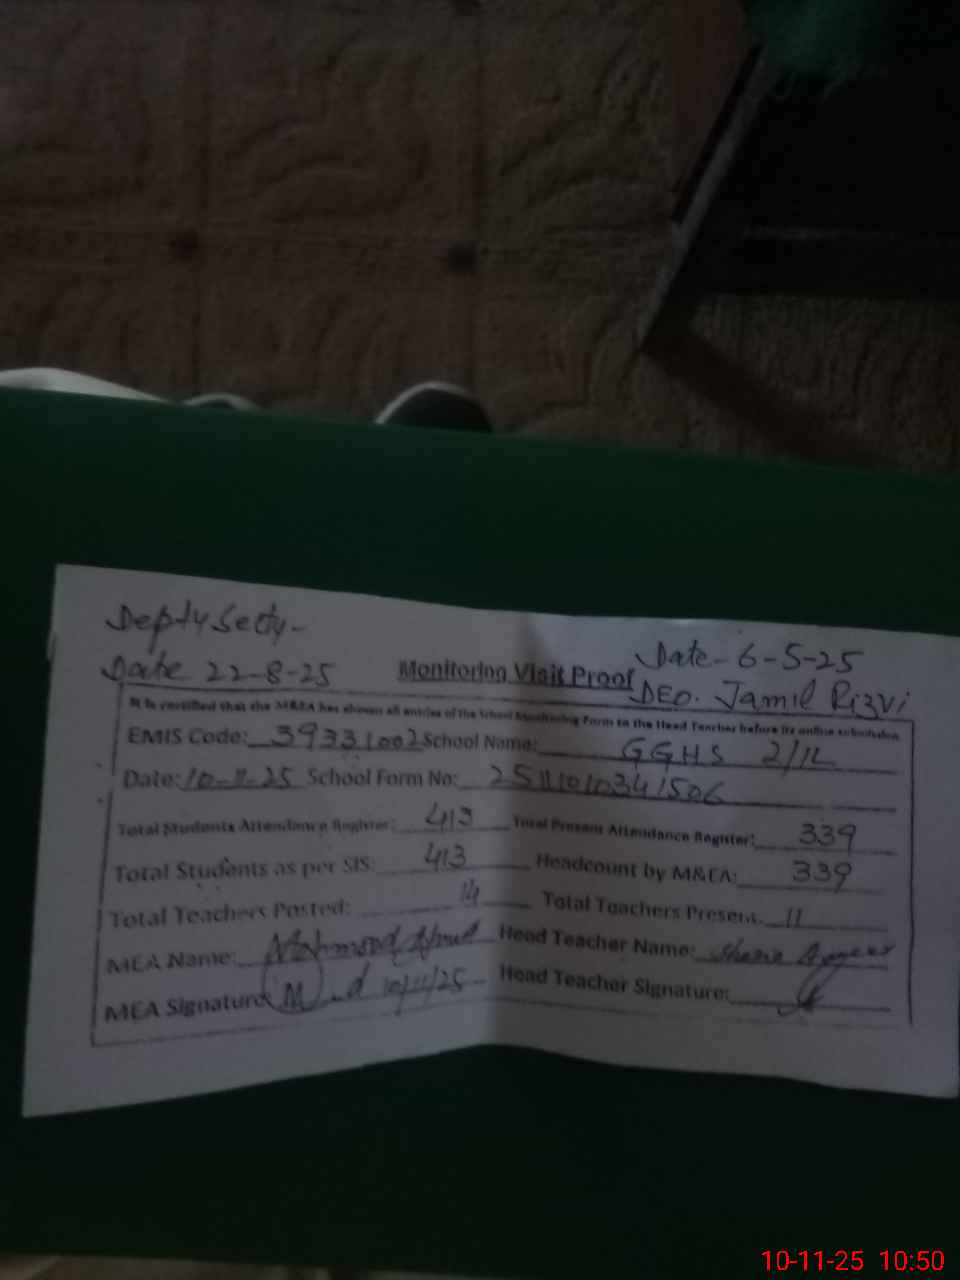 Depty Secty-
Date 22-8-25
Monitoring Visit Proof
Date- 6-5-25
DEO. Jamil Rizvi
It is certified that the M&EA has shown all entries of the School Monitoring Form to the Head Teacher before its online submission
EMIS Code: 39331002 School Name: GGHS 2/1L
Date: 10-11-25 School Form No:
Total Students Attendance Register: 413 Total Present Attendance Register: 339
Total Students as per SIS: 413 Headcount by M&EA: 339
Total Teachers Posted: 14 Total Teachers Present: 11
MEA Name: Mahmood Head Teacher Name:
MEA Signature 10/11/25 Head Teacher Signature:
10-11-25 10:50